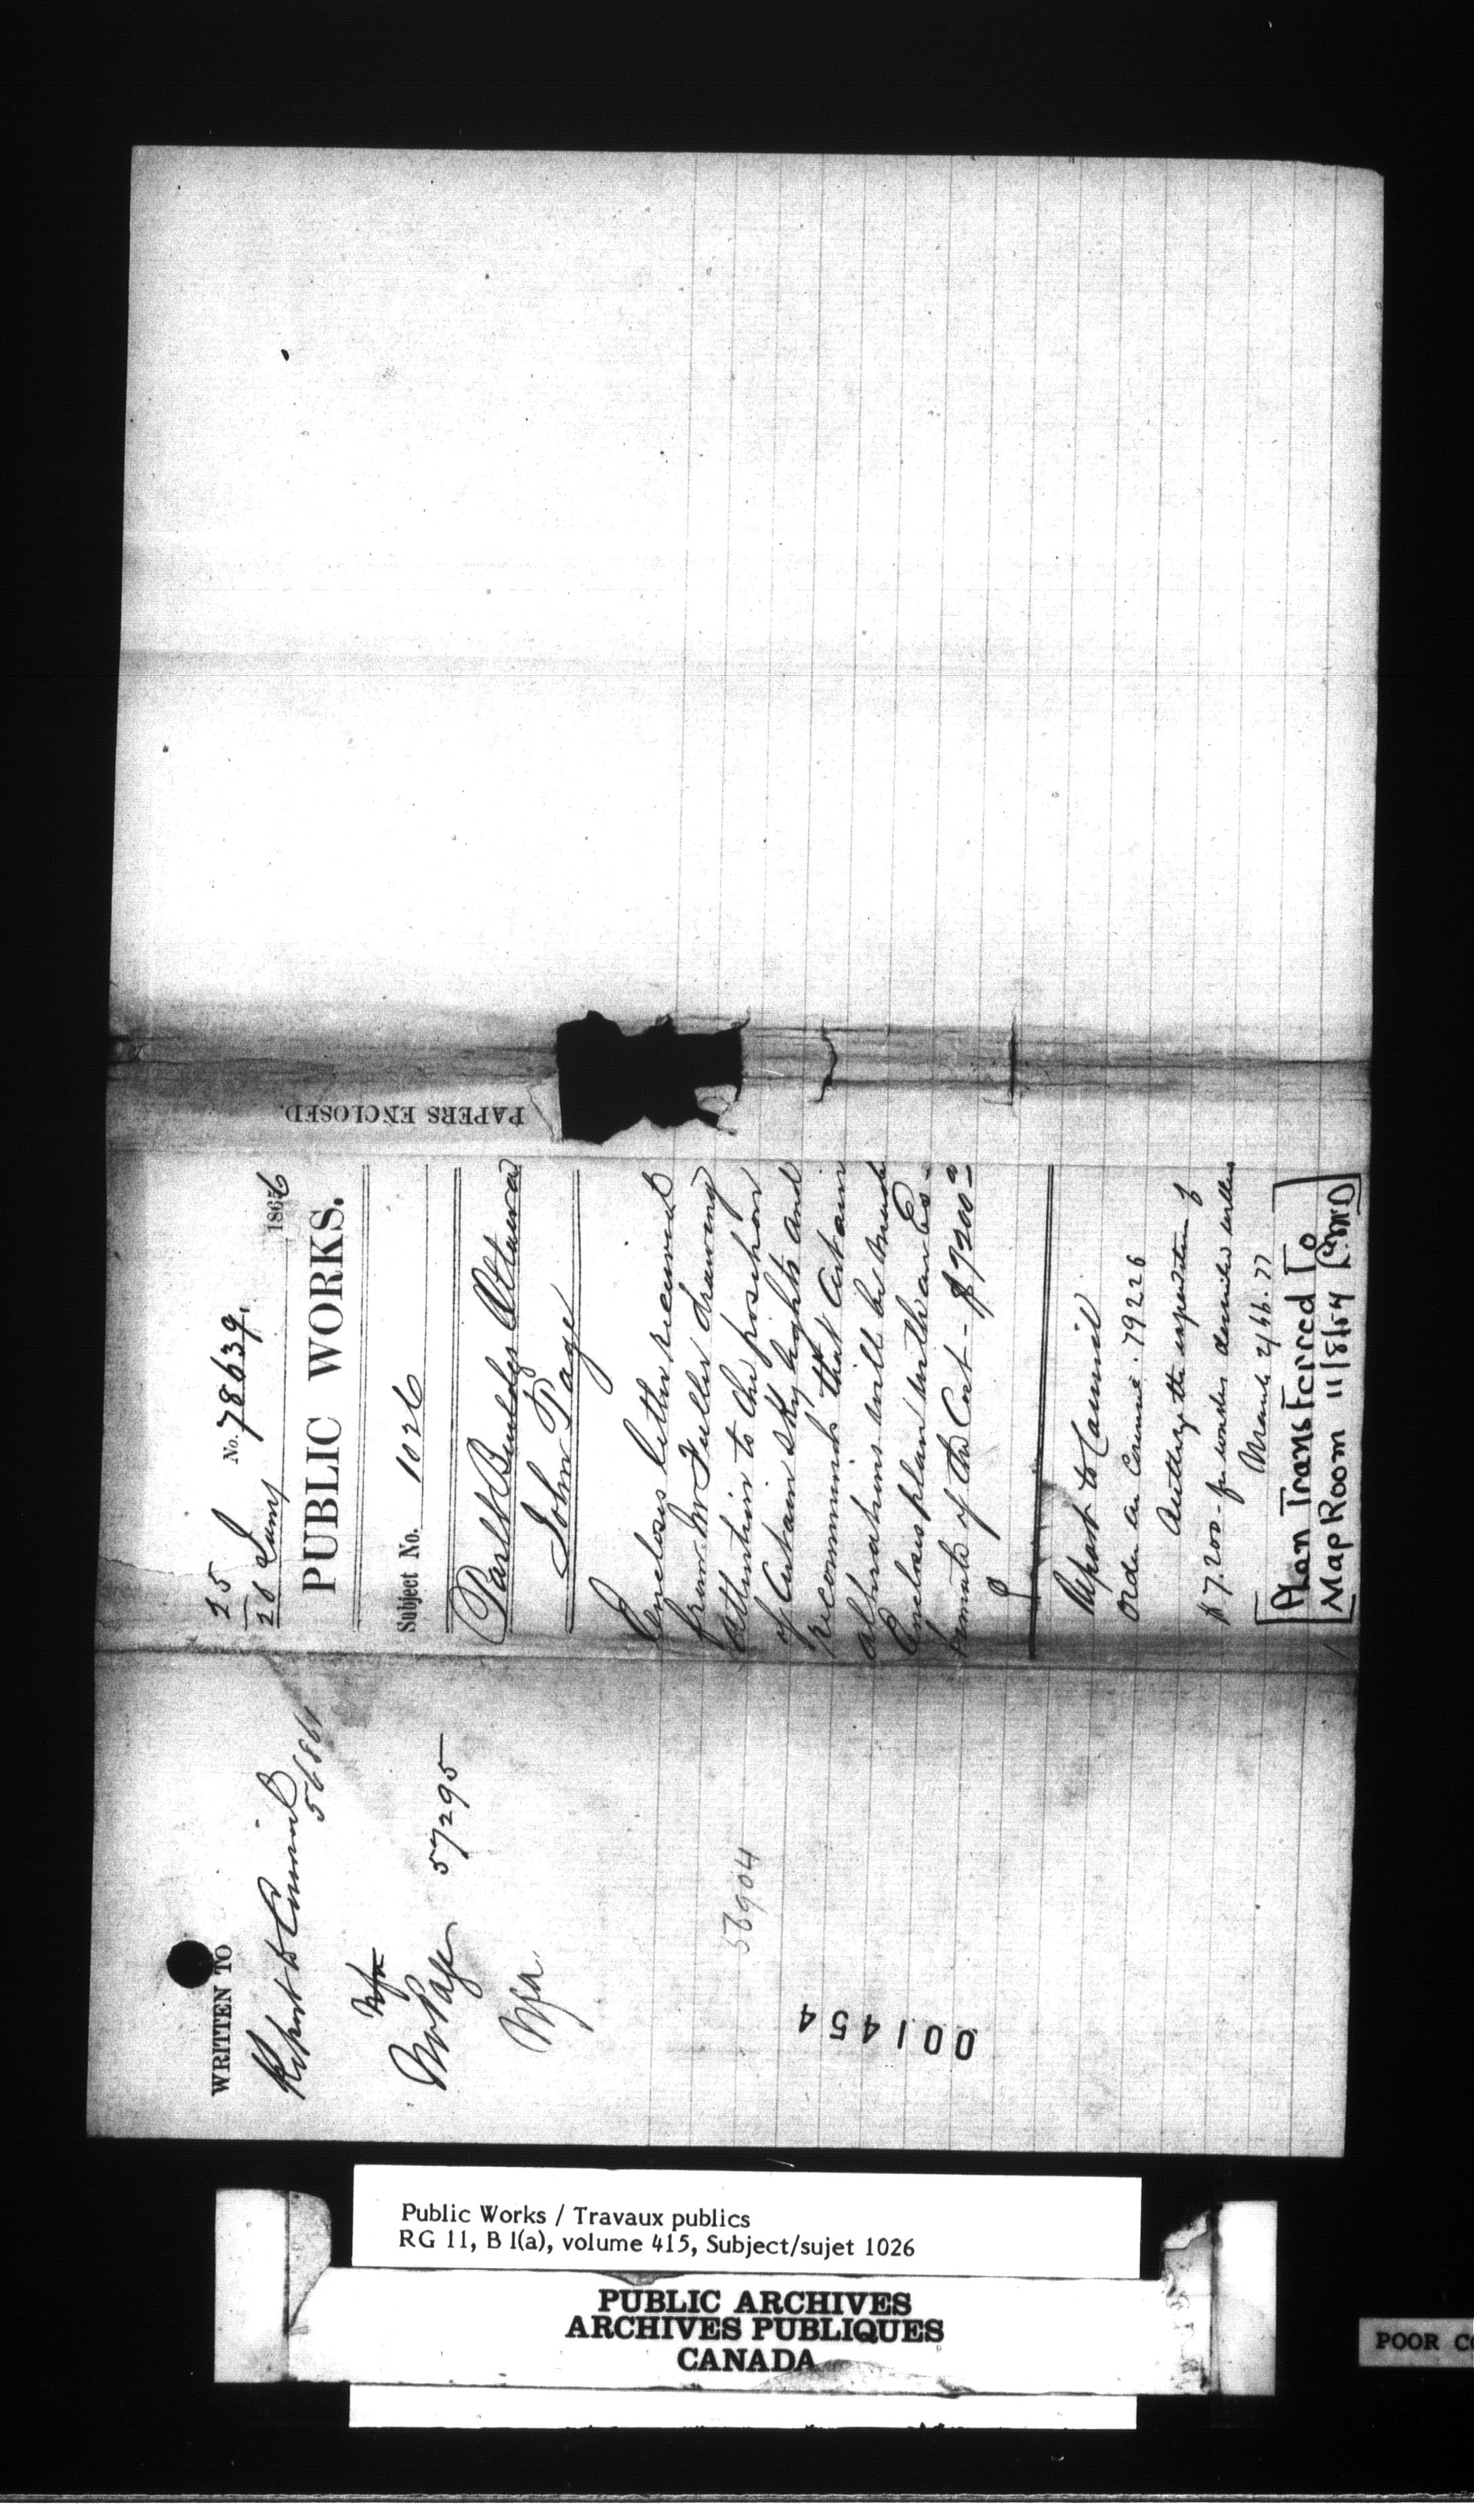 25
20 Jany 1866
No. 78639.
PUBLIC WORKS.
Subject No. 1026
Parlt Buildgs Ottawa
John Page
Encloses letter received
from Mr Fuller drawing
attention to the position
of Certain sky lights and
recommends that Certain
alterations will be made
Encloses plan with an Es-
timate of the Cost - $7200
Report to Council
Order in Council. 79226
Authorizg the expenditure of
$7.200- for works
March 2/66.
Plan Transferred To
Map Room 11/8/54
PAPERS ENCLOSED.
WRITTEN TO
Report to Council
56861
Mr Page 57295
56904
001454
Public Works / Travaux publics
RG 11, B 1(a), volume 415, Subject/sujet 1026
PUBLIC ARCHIVES
ARCHIVES PUBLIQUES
CANADA
POOR CO